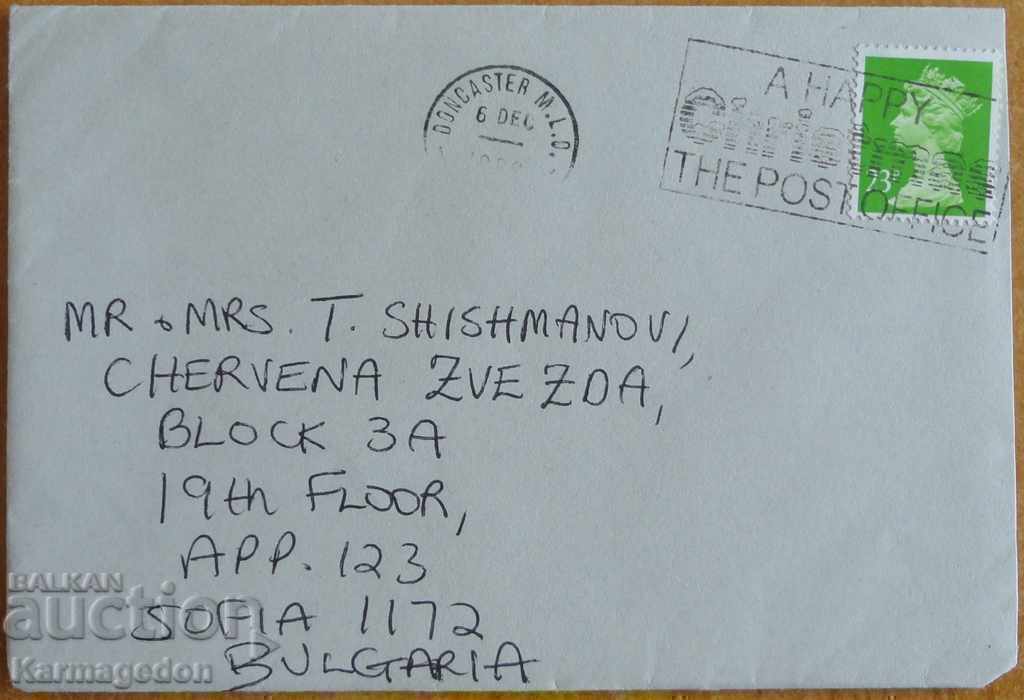 DONCASTER M.L.O.
6 DEC
A HAPPY
THE POST OFFICE
23P
MR + MRS. T. SHISHMANOVI,
CHERVENA ZVEZDA,
BLOCK 3A
19th FLOOR,
APP. 123
SOFIA 1172
BULGARIA
BALKAN
auction
Karmagedon